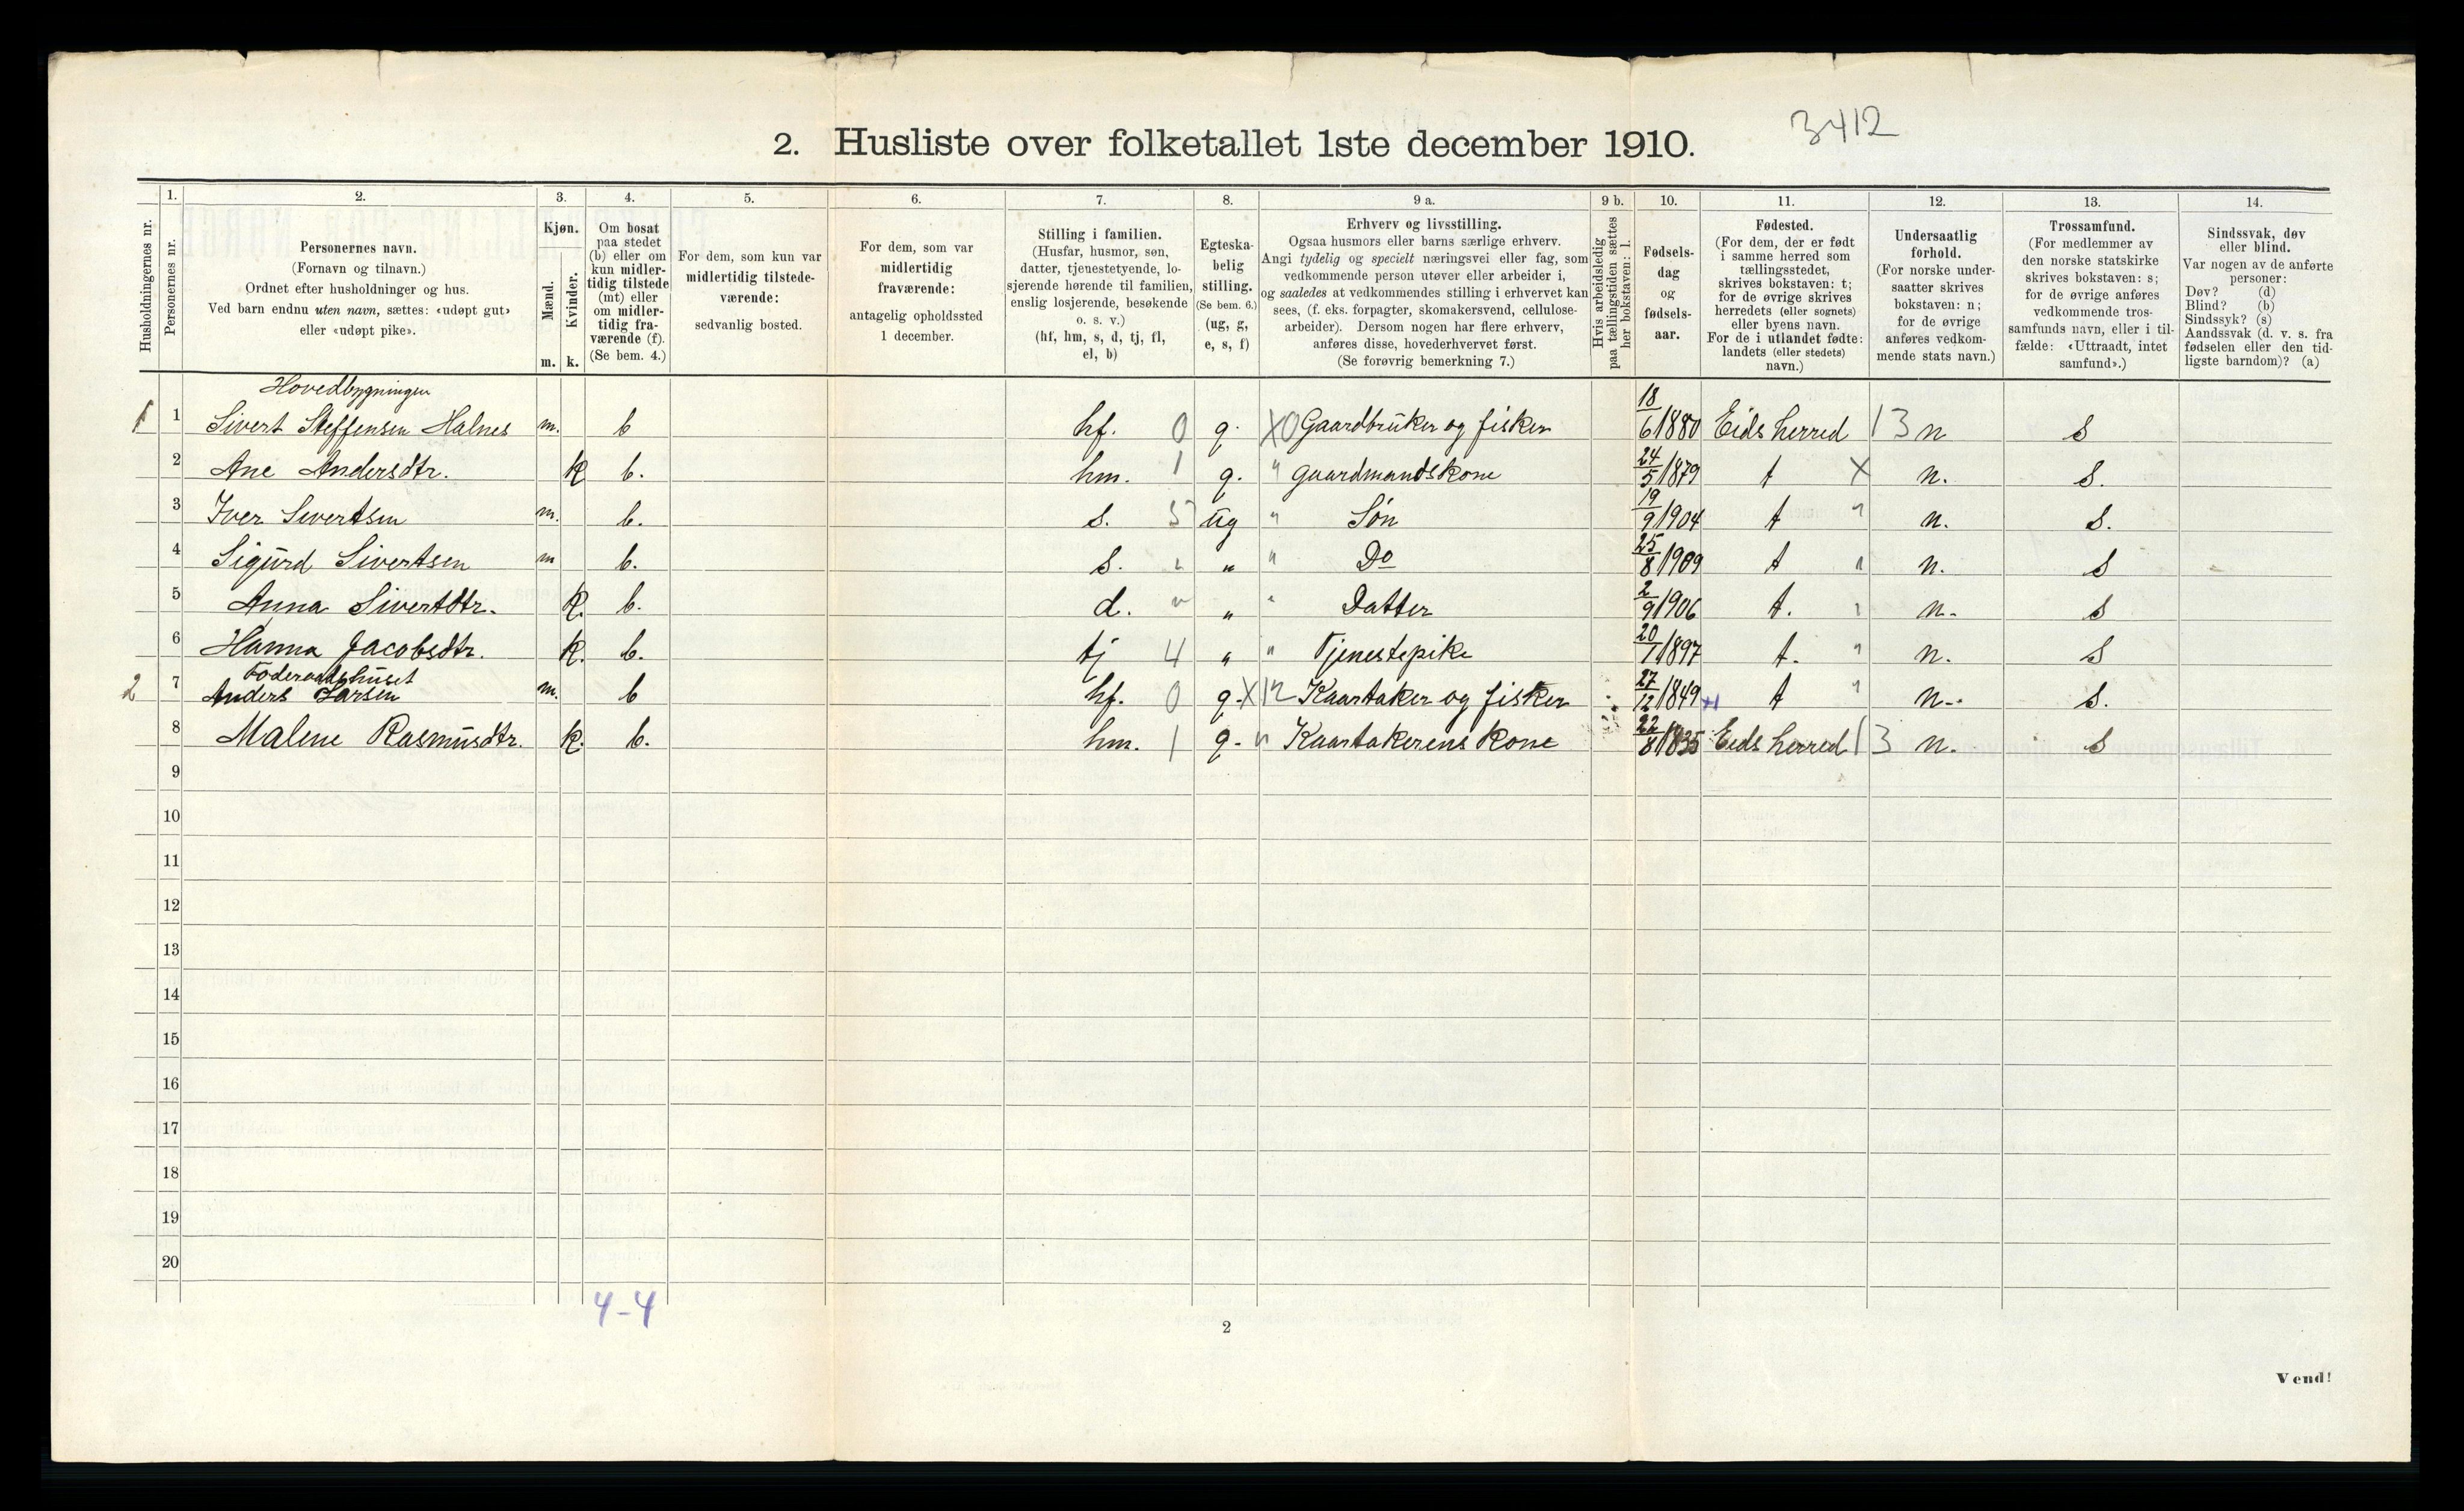 3412
2. Husliste over folketallet 1ste december 1910.
Husholdningernes nr.
1.
Personernes nr.
2.
Personernes navn.
(Fornavn og tilnavn.)
Ordnet efter husholdninger og hus.
Ved barn endnu uten navn, sættes: «udøpt gut»
eller «udøpt pike».
3.
Kjøn.
Mænd.
Kvinder.
m. k.
4.
Om bosat
paa stedet
(b) eller om
kun midler-
tidig tilstede
(mt) eller
om midler-
tidig fra-
værende (f).
(Se bem. 4.)
5.
For dem, som kun var
midlertidig tilstede-
værende:
sedvanlig bosted.
6.
For dem, som var
midlertidig
fraværende:
antagelig opholdssted
1 december.
7.
Stilling i familien.
(Husfar, husmor, søn,
datter, tjenestetyende, lo-
sjerende hørende til familien,
enslig losjerende, besøkende
o. s. v.)
(hf, hm, s, d, tj, fl,
el, b)
8.
Egteska-
belig
stilling.
(Se bem. 6.)
(ug, g,
e, s, f)
9 a.
Erhverv og livsstilling.
Ogsaa husmors eller barns særlige erhverv.
Angi tydelig og specielt næringsvei eller fag, som
vedkommende person utøver eller arbeider i,
og saaledes at vedkommendes stilling i erhvervet kan
sees, (f. eks. forpagter, skomakersvend, cellulose-
arbeider). Dersom nogen har flere erhverv,
anføres disse, hovederhvervet først.
(Se forøvrig bemerkning 7.)
9 b.
Hvis arbeidsledig
paa tællingstiden sættes
her bokstaven: l.
10.
Fødsels-
dag
og
fødsels-
aar.
11.
Fødested.
(For dem, der er født
i samme herred som
tællingsstedet,
skrives bokstaven: t;
for de øvrige skrives
herredets (eller sognets)
eller byens navn.
For de i utlandet fødte:
landets (eller stedets)
navn.)
12.
Undersaatlig
forhold.
(For norske under-
saatter skrives
bokstaven: n;
for de øvrige
anføres vedkom-
mende stats navn.)
13.
Trossamfund.
(For medlemmer av
den norske statskirke
skrives bokstaven: s;
for de øvrige anføres
vedkommende tros-
samfunds navn, eller i til-
fælde: «Uttraadt, intet
samfund».)
14.
Sindssvak, døv
eller blind.
Var nogen av de anførte
personer:
Døv? (d)
Blind? (b)
Sindssyk? (s)
Aandssvak (d. v. s. fra
fødselen eller den tid-
ligste barndom)? (a)
Hovedbygningen
1 1 Sivert Steffensen Halnes m. b hf. 0 g. X0 Gaardbruker og fisker 18/6 1880 Eids herred 13 n s
2 Ane Andersdtr. k b. hm. 1 g. " gaardmandskone 24/5 1879 t X n. s.
3 Iver Sivertsen m. b. s. 5 ug " Søn 19/9 1904 t " n. s.
4 Sigurd Sivertsen m b. s. " " " Do 25/8 1909 t " n. s
5 Anna Sivertdtr. k. b. d. " " " Datter 2/9 1906 t. " n. s
6 Hanna Jacobsdtr. k. b. tj 4 " " Tjenestepike 20/1 1897 t. " n. s
Foderaadshuset
2 7 Anders Larsen m. b hf. 0 g. X 12 Kaartaker og fisker 27/12 1849 t " n. s.
8 Malene Rasmusdtr. k. b. hm. 1 g. " Kaartakerens kone 22/8 1835 Eids herred 13 n. s
9
10
11
12
13
14
15
16
17
18
19
20
4-4
2
Vend!